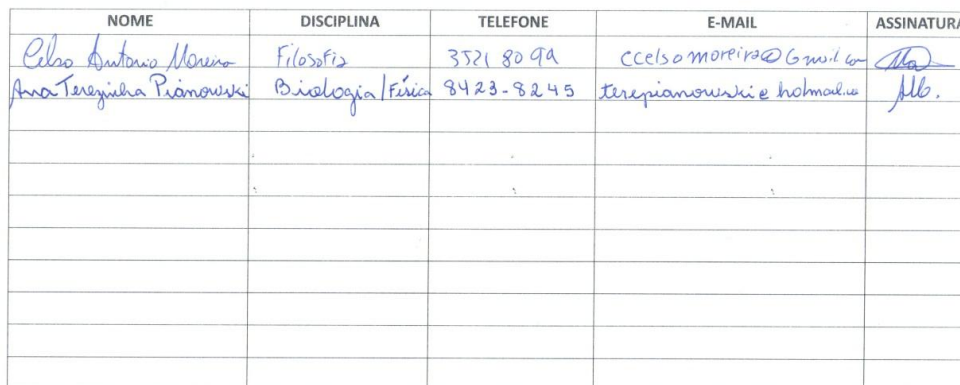 NOME DISCIPLINA TELEFONE E-MAIL ASSINATURA
Celso Antonio Moreira Filosofia 3521 8099 ccelsomoreira@Gmail.com
Ana Terezinha Pianowski Biologia/Física 8423-8245 terepianowski@hotmail.co